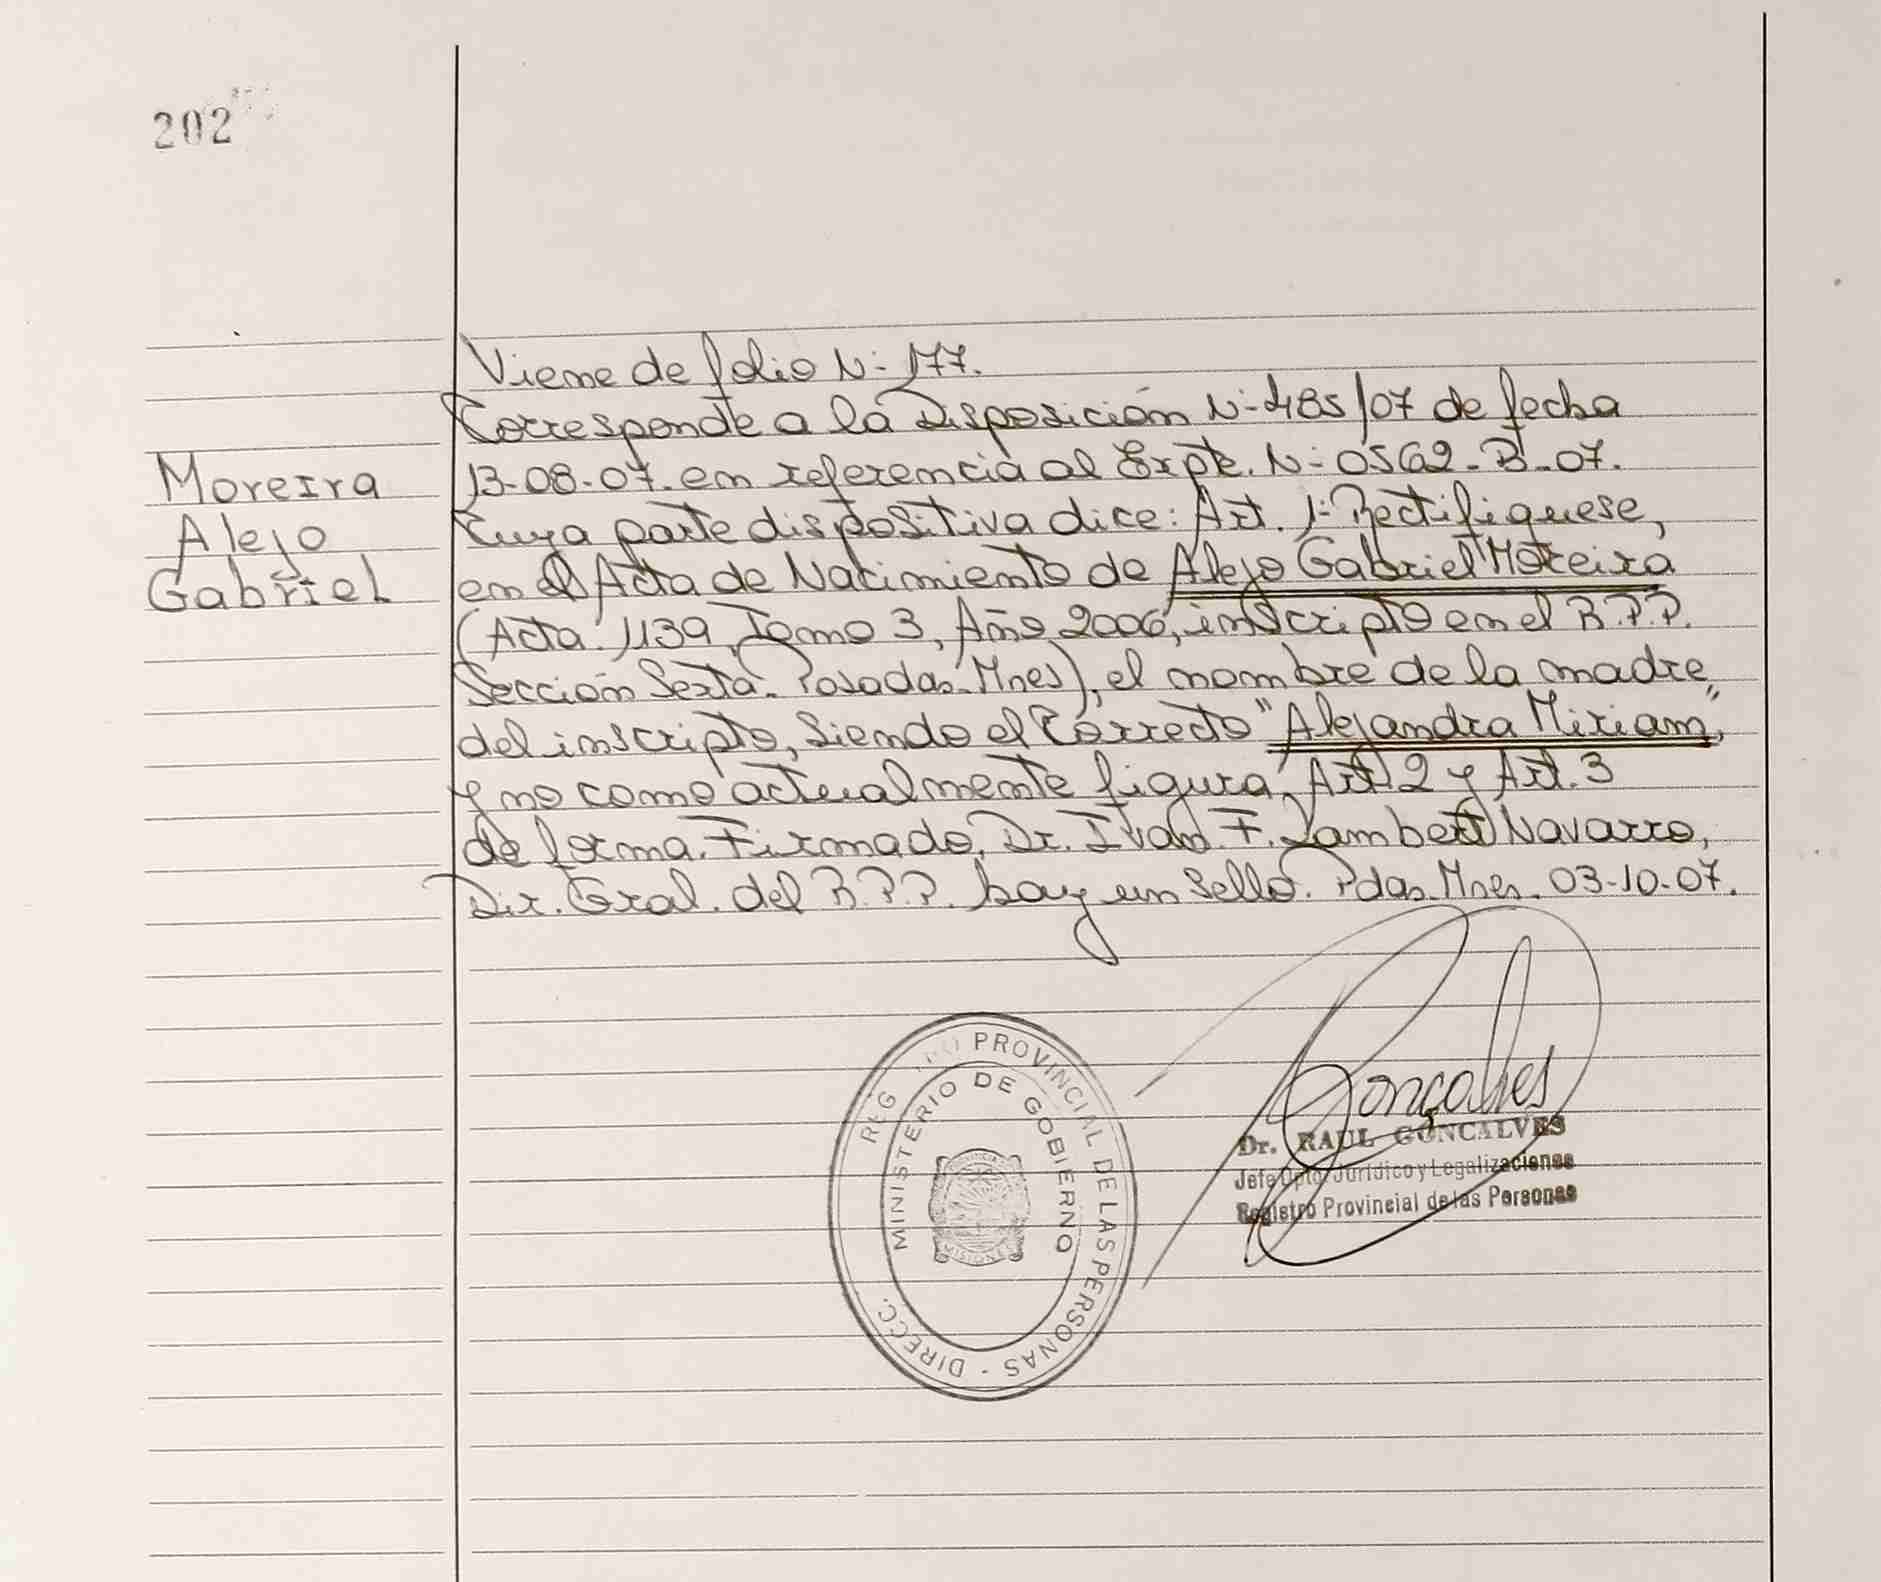 202
Viene de folio N- 177.
Corresponde a la Disposición N-485/07 de fecha
13-08-07. en referencia al Expte. N- 0562-B-07.
Cuya parte dispositiva dice: Art. 1- Rectifiquese,
en el Acta de Nacimiento de Alejo Gabriel Moreira
(Acta 1139, Tomo 3, Año 2006, inscripto en el R.P.P.
Sección Sexta- Posadas-Mnes), el nombre de la madre
del inscripto, siendo el Correcto "Alejandra Miriam",
y no como actualmente figura, Art 2 y Art. 3
de forma. Firmado, Dr. Ivan. F. Lambert Navarro,
Dir. Gral. del R.P.P. hay un Sello. Pdas. Mnes. 03-10-07.
Moreira
Alejo
Gabriel
PROVINCIAL DE LAS PERSONAS - DIRECC.
MINISTERIO DE GOBIERNO
MISIONES
Gonçalves
Dr. RAUL GONCALVES
Jefe Dpto. Jurídico y Legalizaciones
Registro Provincial de las Personas